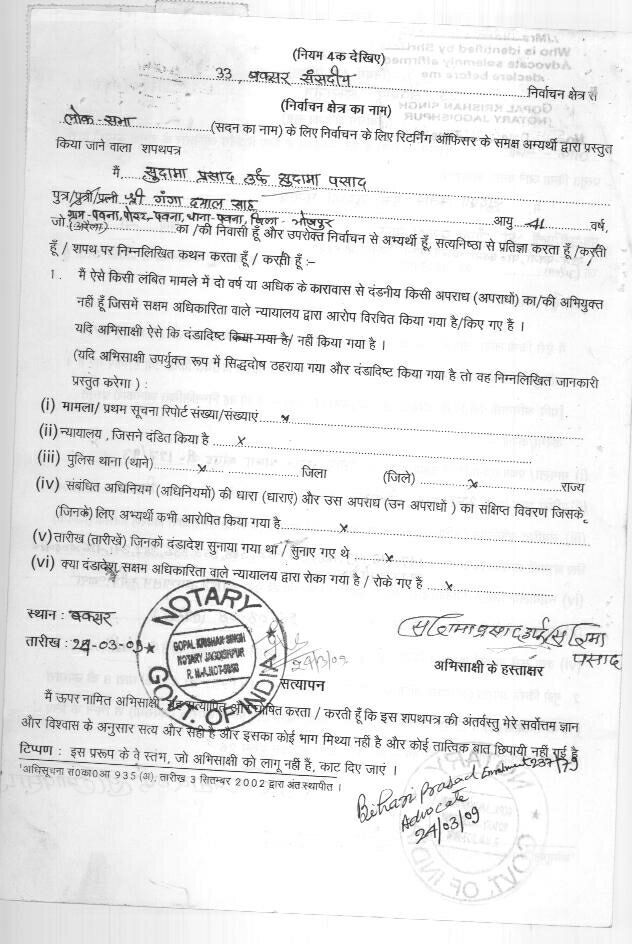 (नियम 4क देखिए)
33, बक्सर संसदीय निर्वाचन क्षेत्र स
(निर्वाचन क्षेत्र का नाम)
लोक-सभा (सदन का नाम) के लिए निर्वाचन के लिए रिटर्निंग ऑफिसर के समक्ष अभ्यर्थी द्वारा प्रस्तुत
किया जाने वाला शपथपत्र
मैं, सुदामा प्रसाद उर्फ सुदामा पसाद
पुत्र/पुत्री/पत्नी श्री गंगा दयाल साह आयु 41 वर्ष,
ग्राम-पवना, पोस्ट-पवना, थाना-पवना, जिला-भोजपुर
जो का /की निवासी हूँ और उपरोक्त निर्वाचन से अभ्यर्थी हूँ, सत्यनिष्ठा से प्रतिज्ञा करता हूँ /करती
हूँ / शपथ पर निम्नलिखित कथन करता हूँ / करती हूँ :-
1. मैं ऐसे किसी लंबित मामले में दो वर्ष या अधिक के कारावास से दंडनीय किसी अपराध (अपराधों) का/की अभियुक्त
नहीं हूँ जिसमें सक्षम अधिकारिता वाले न्यायालय द्वारा आरोप विरचित किया गया है/किए गए हैं ।
यदि अभिसाक्षी ऐसे कि दंडादिष्ट किया गया है/ नहीं किया गया है ।
(यदि अभिसाक्षी उपर्युक्त रूप में सिद्धदोष ठहराया गया और दंडादिष्ट किया गया है तो वह निम्नलिखित जानकारी
प्रस्तुत करेगा ) :
(i) मामला/ प्रथम सूचना रिपोर्ट संख्या/संख्याएं x
(ii) न्यायालय , जिसने दंडित किया है x
(iii) पुलिस थाना (थाने) x जिला (जिले) x राज्य
(iv) संबंधित अधिनियम (अधिनियमों) की धारा (धाराएं) और उस अपराध (उन अपराधों ) का संक्षिप्त विवरण जिसके
(जिनके) लिए अभ्यर्थी कभी आरोपित किया गया है x
(v) तारीख (तारीखें) जिनकों दंडादेश सुनाया गया था / सुनाए गए थे x
(vi) क्या दंडादेश सक्षम अधिकारिता वाले न्यायालय द्वारा रोका गया है / रोके गए हैं x
स्थान : बक्सर
तारीख : 24-03-09
NOTARY
GOPAL KRISHAN SINGH
NOTARY JAGDISHPUR
GOVT. OF INDIA
24/3/09
सुदामा प्रसाद उर्फ सुदामा
पसाद
अभिसाक्षी के हस्ताक्षर
सत्यापन
मैं ऊपर नामित अभिसाक्षी, यह सत्यापित और घोषित करता / करती हूँ कि इस शपथपत्र की अंतर्वस्तु मेरे सर्वोत्तम ज्ञान
और विश्वास के अनुसार सत्य और सही है और इसका कोई भाग मिथ्या नहीं है और कोई तात्विक बात छिपायी नहीं गई है
टिप्पण : इस प्ररूप के वे स्तम, जो अभिसाक्षी को लागू नहीं है, काट दिए जाएं ।
¹अधिसूचना सं0का0आ 935 (अ), तारीख 3 सितम्बर 2002 द्वारा अंत स्थापीत ।
Bihari Prasad Enrolment 237/79
Advocate
24/03/09